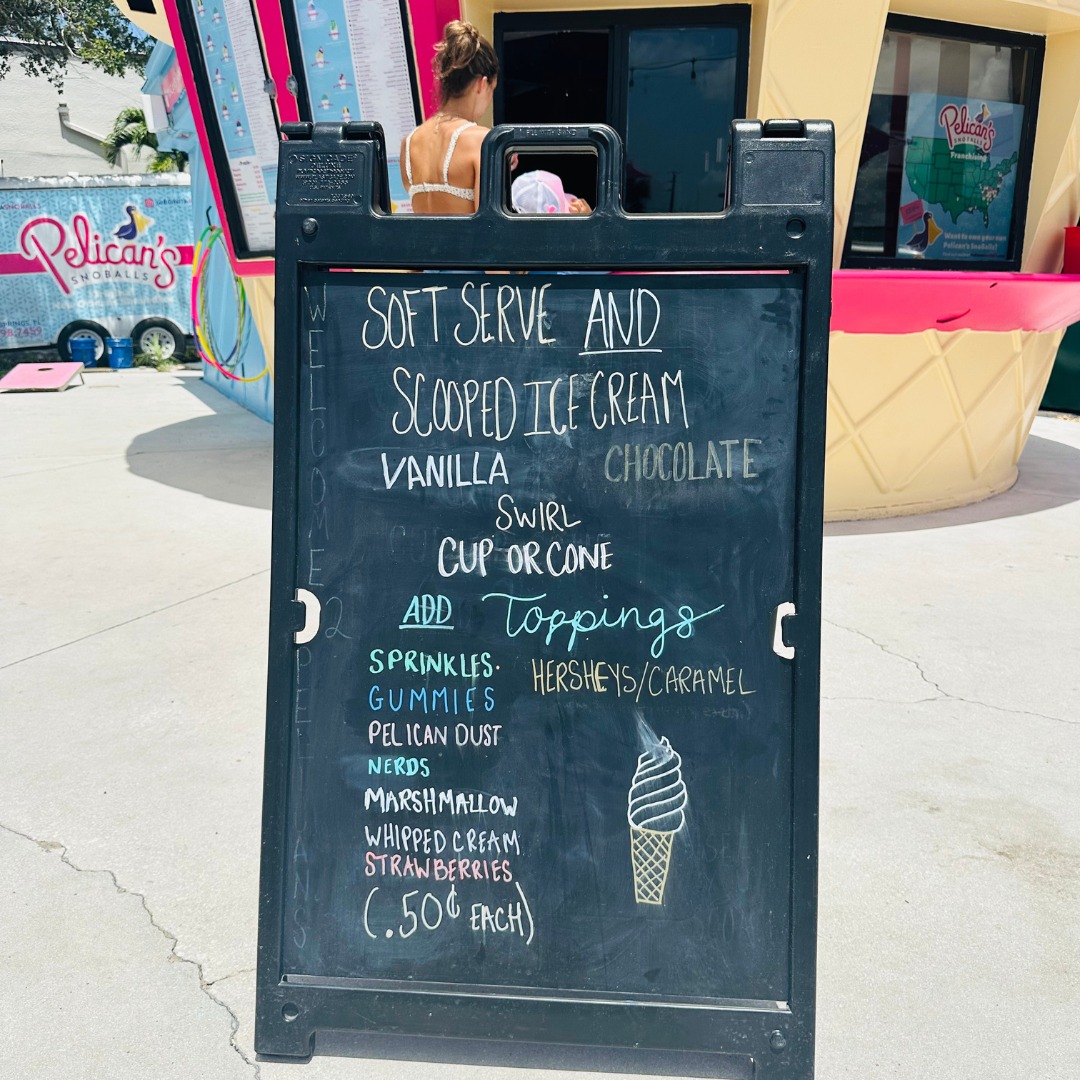 Pelican's
SNOBALLS
Pelican's
SNOBALLS
Franchising
Want to own your own
Pelican's SnoBalls?
WELCOME 2 PELICANS
SOFT SERVE AND
SCOOPED ICE CREAM
VANILLA CHOCOLATE
SWIRL
CUP OR CONE
ADD Toppings
SPRINKLES. HERSHEYS/CARAMEL
GUMMIES
PELICAN DUST
NERDS
MARSHMALLOW
WHIPPED CREAM
STRAWBERRIES
(.50¢ EACH)